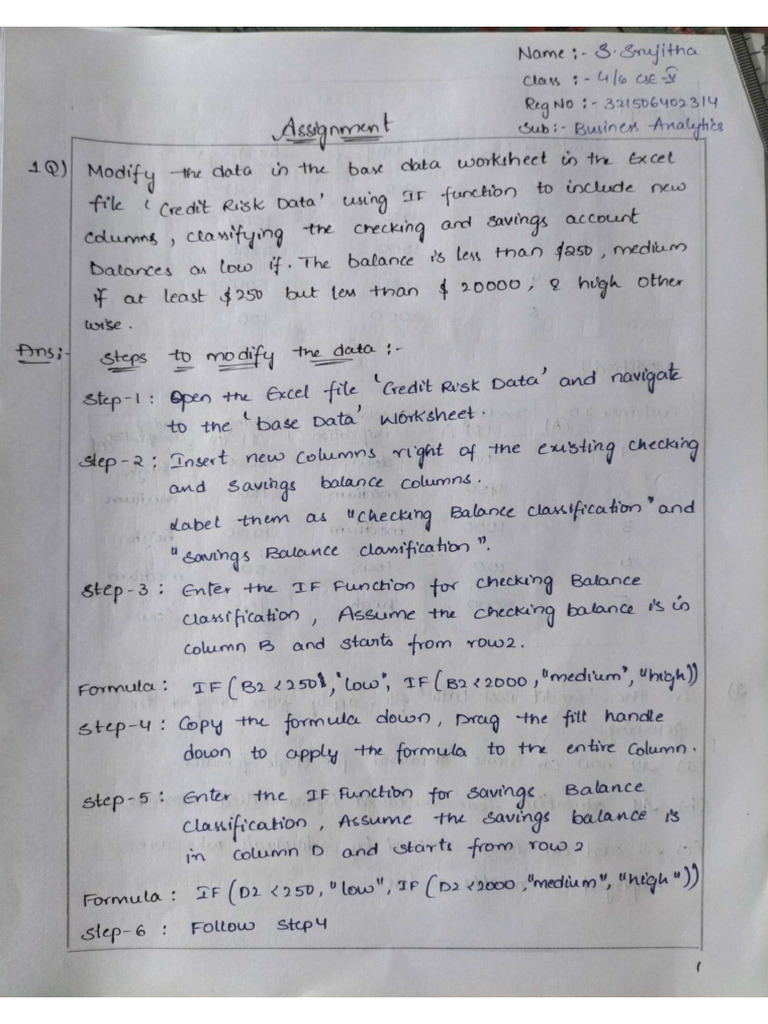 Name :- S. Srujitha
Class :- 4/6 CSE-V
Reg No :- 321506402314
Sub :- Business Analytics
Assignment
1Q) Modify the data in the base data worksheet in the Excel
file 'Credit Risk Data' using IF function to include new
columns, classifying the checking and savings account
balances as low if. The balance is less than $250, medium
if at least $250 but less than $ 20000, & high other
wise.
Ans:- Steps to modify the data :-
Step-1 : Open the Excel file 'Credit Risk Data' and navigate
to the 'base Data' worksheet.
Step-2 : Insert new columns right of the existing checking
and savings balance columns.
Label them as "Checking Balance classification" and
"Savings Balance classification".
Step-3 : Enter the IF Function for checking Balance
classification, Assume the checking balance is in
column B and starts from row2.
Formula : IF(B2<250, "low", IF(B2<2000, "medium", "high))
Step-4 : Copy the formula down, Drag the fill handle
down to apply the formula to the entire column.
Step-5 : Enter the IF Function for savings. Balance
classification, Assume the savings balance is
in column D and starts from row 2
Formula : IF(D2<250, "low", IF(D2<2000, "medium", "high"))
Step-6 : Follow step4
1